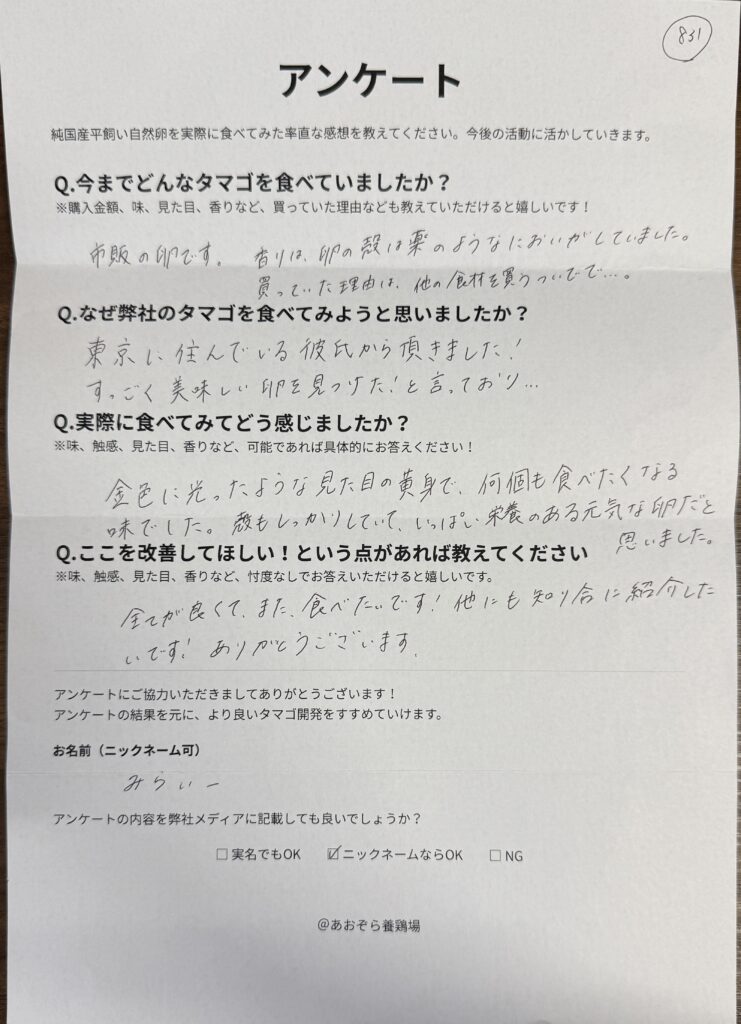 831
アンケート
純国産平飼い自然卵を実際に食べてみた率直な感想を教えてください。今後の活動に活かしていきます。
Q.今までどんなタマゴを食べていましたか？
※購入金額、味、見た目、香りなど、買っていた理由なども教えていただけると嬉しいです！
市販の卵です。 香りは、卵の殻は薬のようなにおいがしていました。
買っていた理由は、他の食材を買うついでで…。
Q.なぜ弊社のタマゴを食べてみようと思いましたか？
東京に住んでいる彼氏から頂きました！
すっごく美味しい卵を見つけた！と言っており…
Q.実際に食べてみてどう感じましたか？
※味、触感、見た目、香りなど、可能であれば具体的にお答えください！
金色に光ったような見た目の黄身で、何個も食べたくなる
味でした。殻もしっかりしていて、いっぱい栄養のある元気な卵だと
思いました。
Q.ここを改善してほしい！という点があれば教えてください
※味、触感、見た目、香りなど、忖度なしでお答えいただけると嬉しいです。
全てが良くて、また、食べたいです！他にも知り合に紹介した
いです！ありがとうございます。
アンケートにご協力いただきましてありがとうございます！
アンケートの結果を元に、より良いタマゴ開発をすすめていけます。
お名前（ニックネーム可）
みらいー
アンケートの内容を弊社メディアに記載しても良いでしょうか？
□ 実名でもOK ☑ ニックネームならOK □ NG
@あおぞら養鶏場